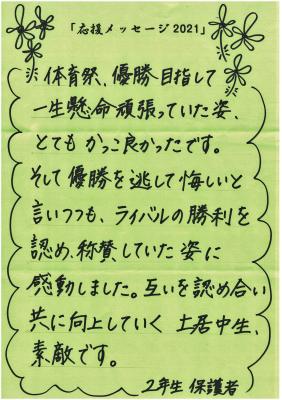 「応援メッセージ2021」
※体育祭、優勝目指して
一生懸命頑張っていた姿、
とてもかっこ良かったです。
そして優勝を逃して悔しいと
言いつつも、ライバルの勝利を
認め、称賛していた姿に
感動しました。互いを認め合い
共に向上していく土居中生、
素敵です。
2年生 保護者